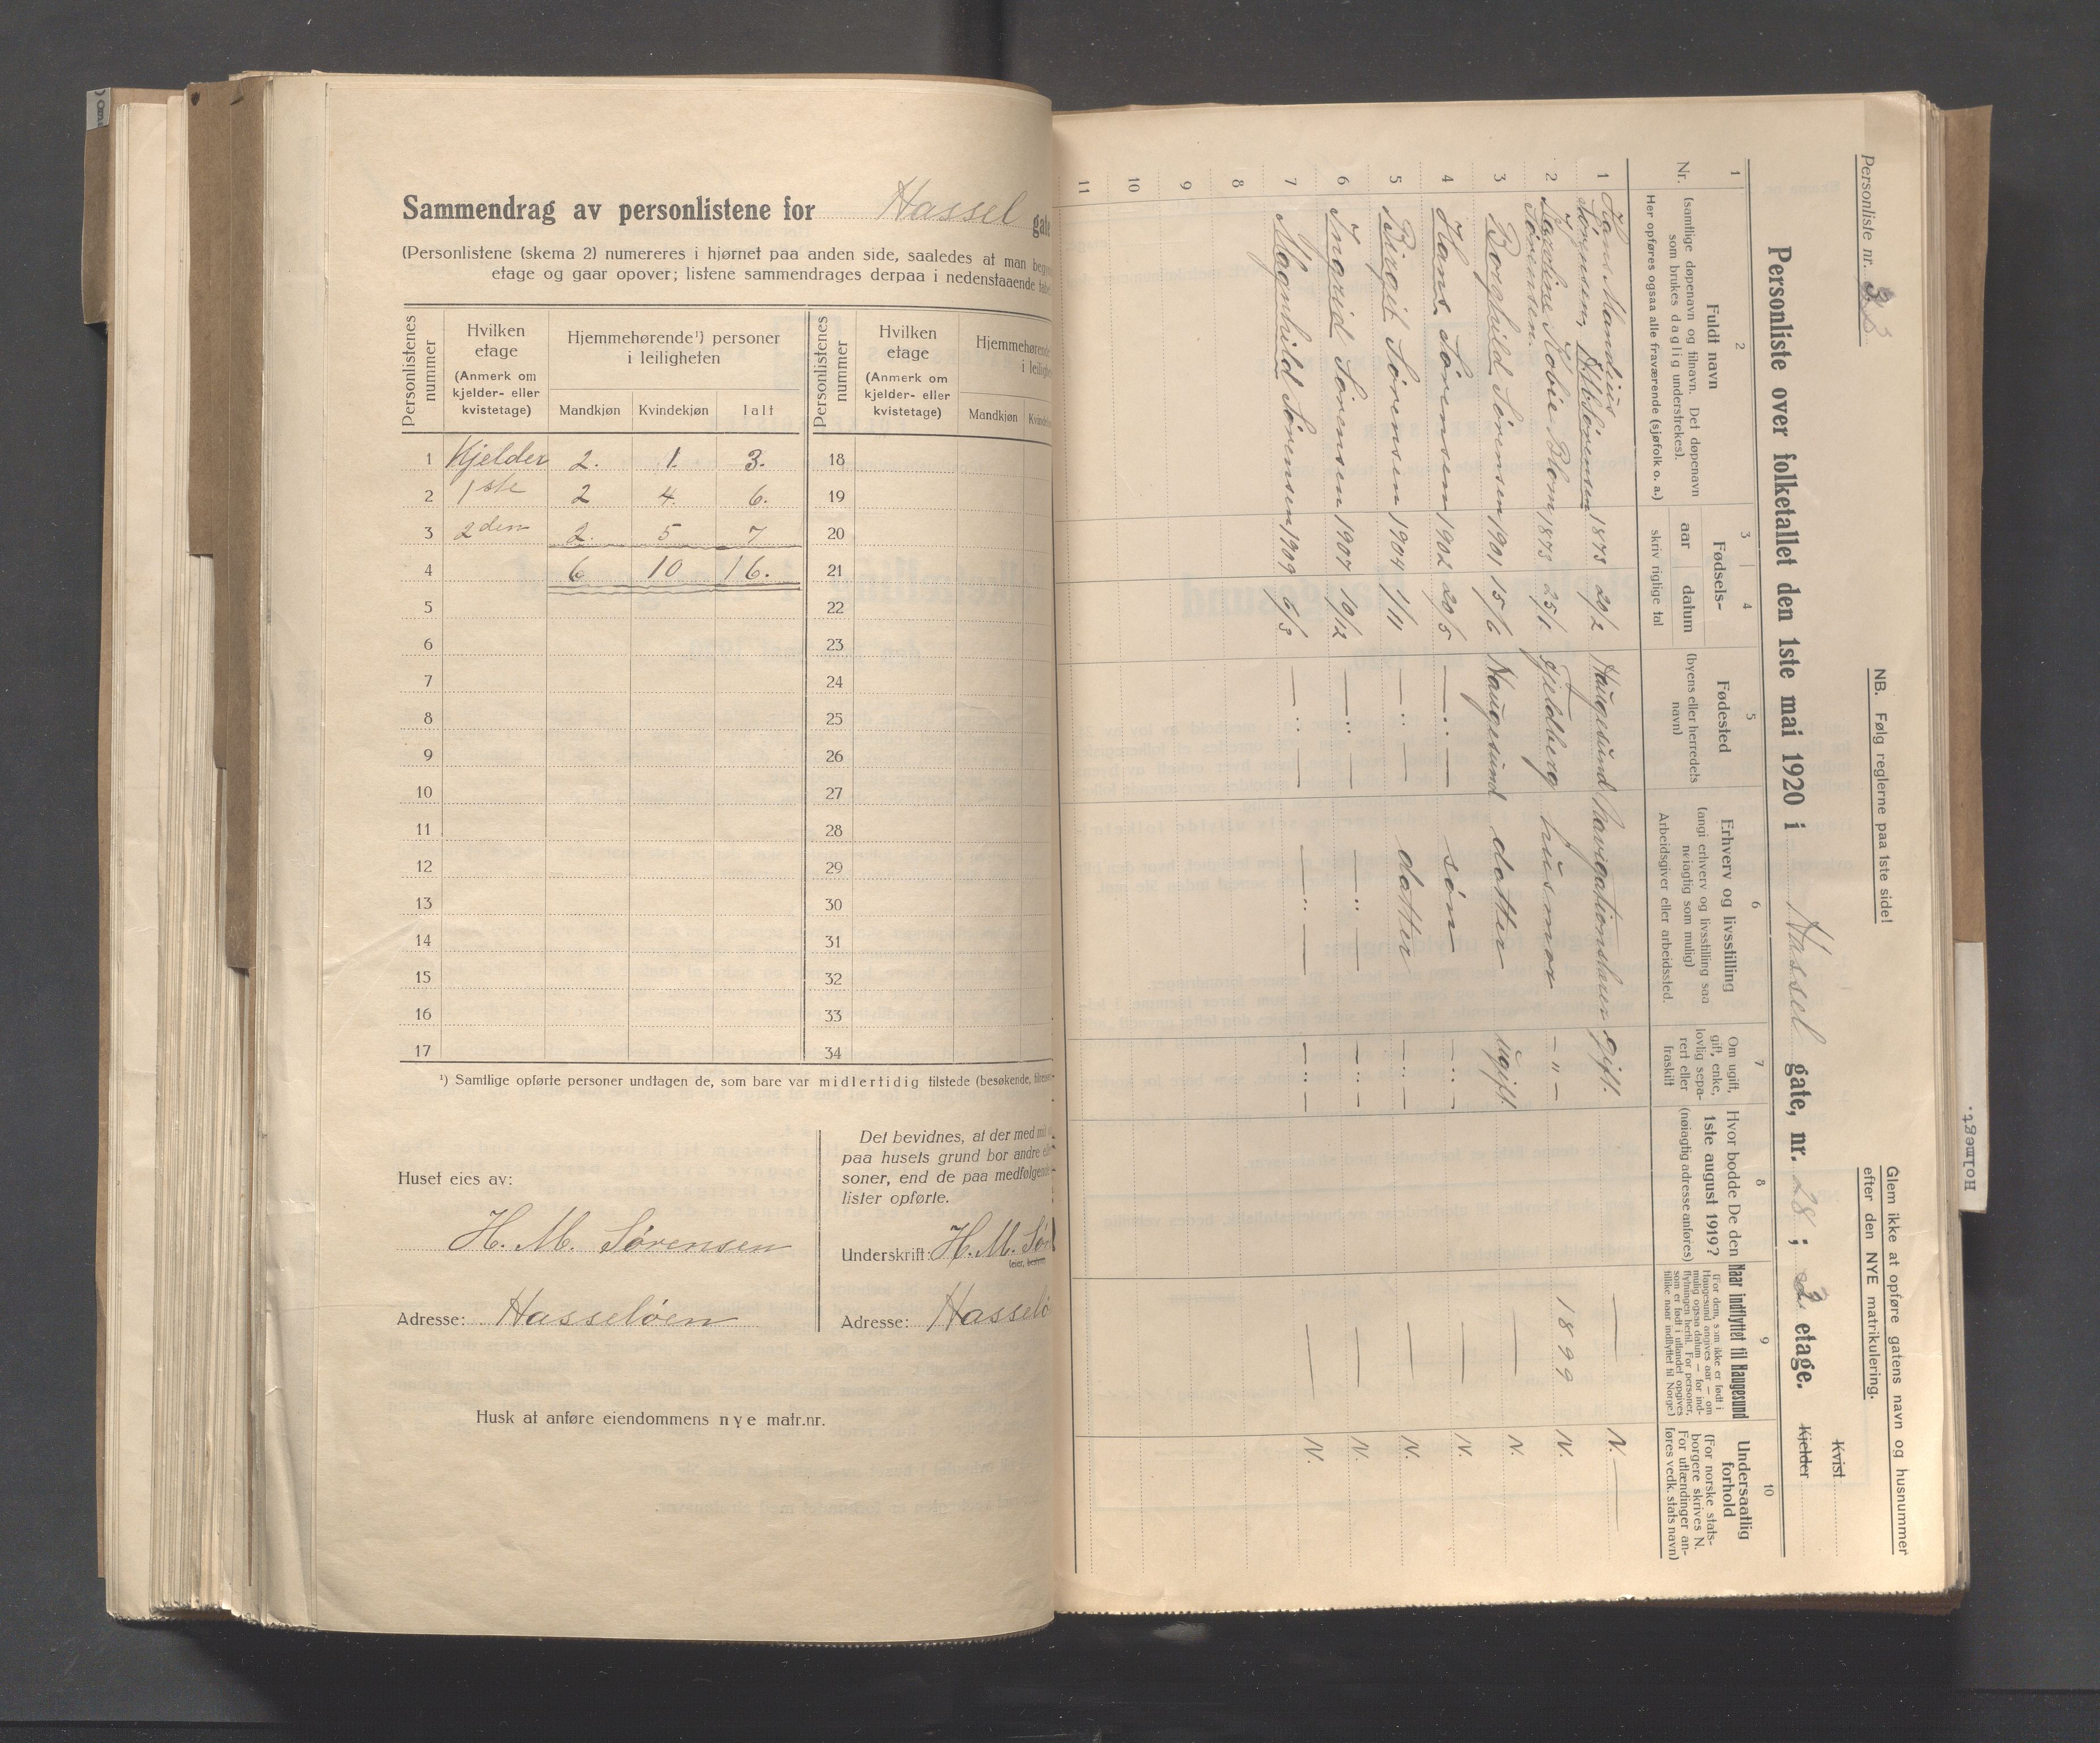 Sammendrag av personlistene for Hassel gate
(Personlistene (skema 2) numereres i hjørnet paa anden side, saaledes at man
etage og gaar opover; listene sammendrages derpaa i nedenstaaende
Personlistenes nummer | Hvilken etage (Anmerk om kjelder- eller kvistetage) | Hjemmehørende¹) personer i leiligheten | Personlistenes nummer | Hvilken etage (Anmerk om kjelder- eller kvistetage) | Hjemmehørende
Mandkjøn | Kvindekjøn | Ialt | Mandkjøn
1 Kjelder 2. 1. 3. 18
2 1ste 2 4. 6. 19
3 2den 2. 5 7 20
4 6 10 16. 21
5 22
6 23
7 24
8 25
9 26
10 27
11 28
12 29
13 30
14 31
15 32
16 33
17 34
¹) Samtlige opførte personer undtagen de, som bare var midlertidig tilstede (besøkende,
Huset eies av:
H. M. Sørensen
Adresse: Hasseløen
Det bevidnes, at der med
paa husets grund bor andre
soner, end de paa medfølgende
lister opførte.
Underskrift: H. M. Sør
Adresse: Hasselø
Husk at anføre eiendommens nye matr.nr.
Personliste nr. 3
NB. Følg reglerne paa 1ste side!
Glem ikke at opføre gatens navn og husnummer
efter den NYE matrikulering.
Kvist
Personliste over folketallet den 1ste mai 1920 i Hassel gate, nr. 28; 2. etage. Kjelder
1 | 2 | 3 | 4 | 5 | 6 | 7 | 8 | 9 | 10
Nr.
Fuldt navn
(samtlige døpenavn og tilnavn. Det døpenavn
som brukes daglig understrekes).
Her opføres ogsaa alle fraværende (sjøfolk o. a.)
Fødsels-
aar | datum
skriv riglige tal
Fødested
(byens eller herredets
navn)
Erhverv og livsstilling
(angi erhverv og livsstilling saa
nøiagtig som mulig)
Arbeidsgiver eller arbeidssted.
Om ugift,
gift, enke,
lovlig sepa-
rert eller
fraskilt
Hvor bodde De den
1ste august 1919?
(nøiagtig adresse anføres)
Naar indflyttet til Haugesund
(For dem, som ikke er født i
Haugesund angives aar – om
mulig ogsaa datum – for ind-
flytningen hertil. For personer,
som er født i utlandet opgives
tillike naar indflyttet til Norge.)
Undersaatlig
forhold
(For norske stats-
borgere skrives N.
For utlændinger an-
føres vedk. stats navn)
1 Hans Mandius
Sørensen, 1873 20/2 Haugesund Navigationslærer gift. — N. —
2 Bardine Tobie Blom
Sørensen. 1873 25/1. Fjeldberg husmor — " — 1899 N.
3 Borghild Sørensen 1901 15/6 Haugesund datter ugift. — N.
4 Hans Sørensen 1902 20/5 — " — søn — " — — N.
5 Birgit Sørensen 1904 1/11 — " — datter — " — — N.
6 Ingrid Sørensen 1907 19/12 — " — — " — — " — — N.
7 Magnhild Sørensen 1909 6/3 — " — — " — — " — — N.
8
9
10
11
Holmegt.